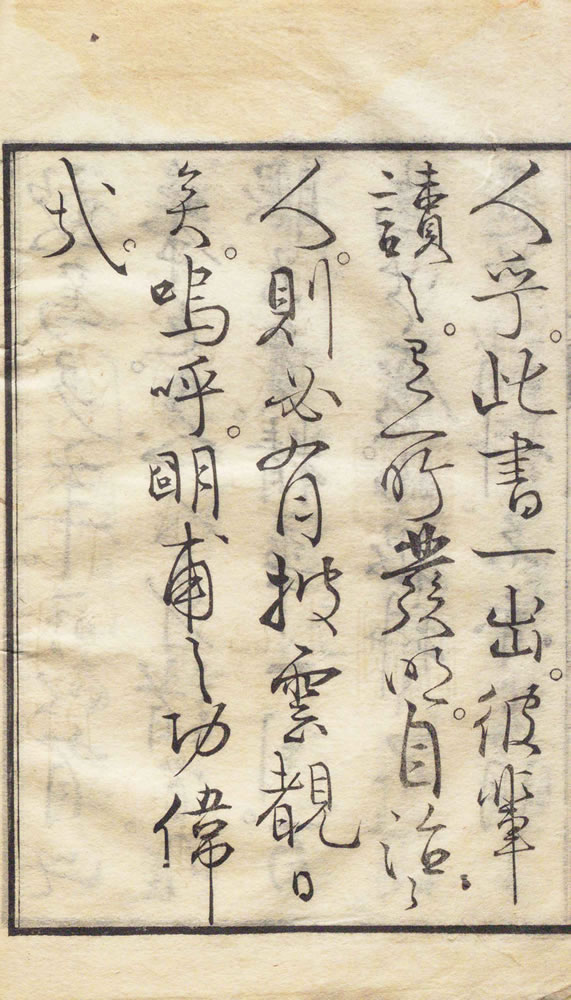 人乎。此書一出。彼輩
讀之。有所發明。自治治
人。則必有目披雲覩日
矣。嗚呼。明甫之功偉
哉。